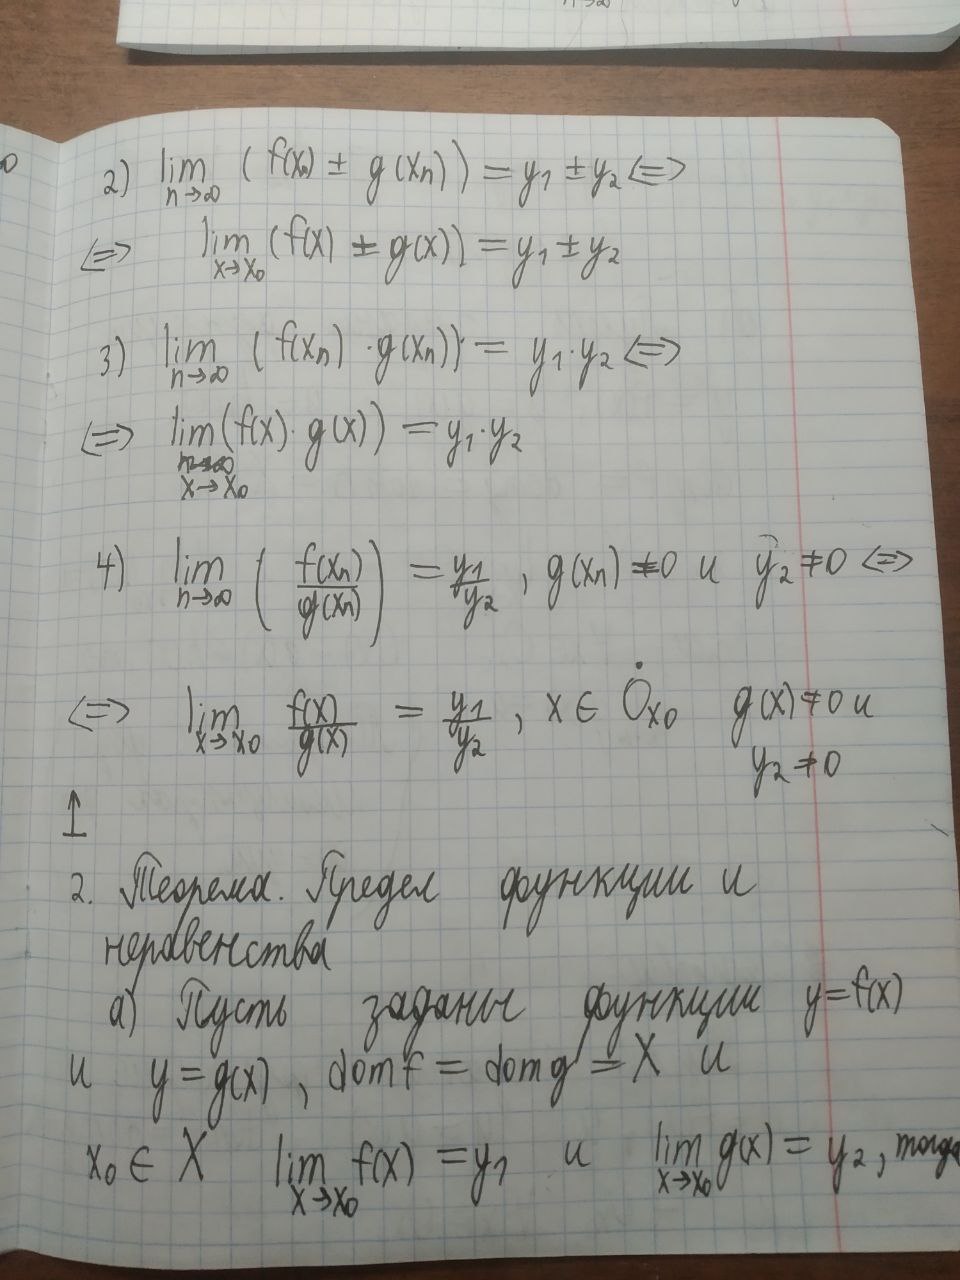 n→∞
2) lim (f(xₙ) ± g(xₙ)) = y₁ ± y₂ <=>
n→∞
<=> lim (f(x) ± g(x)) = y₁ ± y₂
x→x₀
3) lim (f(xₙ) · g(xₙ)) = y₁ · y₂ <=>
n→∞
<=> lim (f(x) · g(x)) = y₁ · y₂
n→∞
x→x₀
4) lim (f(xₙ)/g(xₙ)) = y₁/y₂ , g(xₙ) ≠ 0 и y₂ ≠ 0 <=>
n→∞
<=> lim f(x)/g(x) = y₁/y₂ , x ∈ Ȯx₀ g(x) ≠ 0 и
x→x₀
y₂ ≠ 0
2. Теорема. Предел функции и
неравенства
а) Пусть заданы функции y = f(x)
и y = g(x) , dom f = dom g = X и
x₀ ∈ X lim f(x) = y₁ и lim g(x) = y₂ , тогда
x→x₀ x→x₀